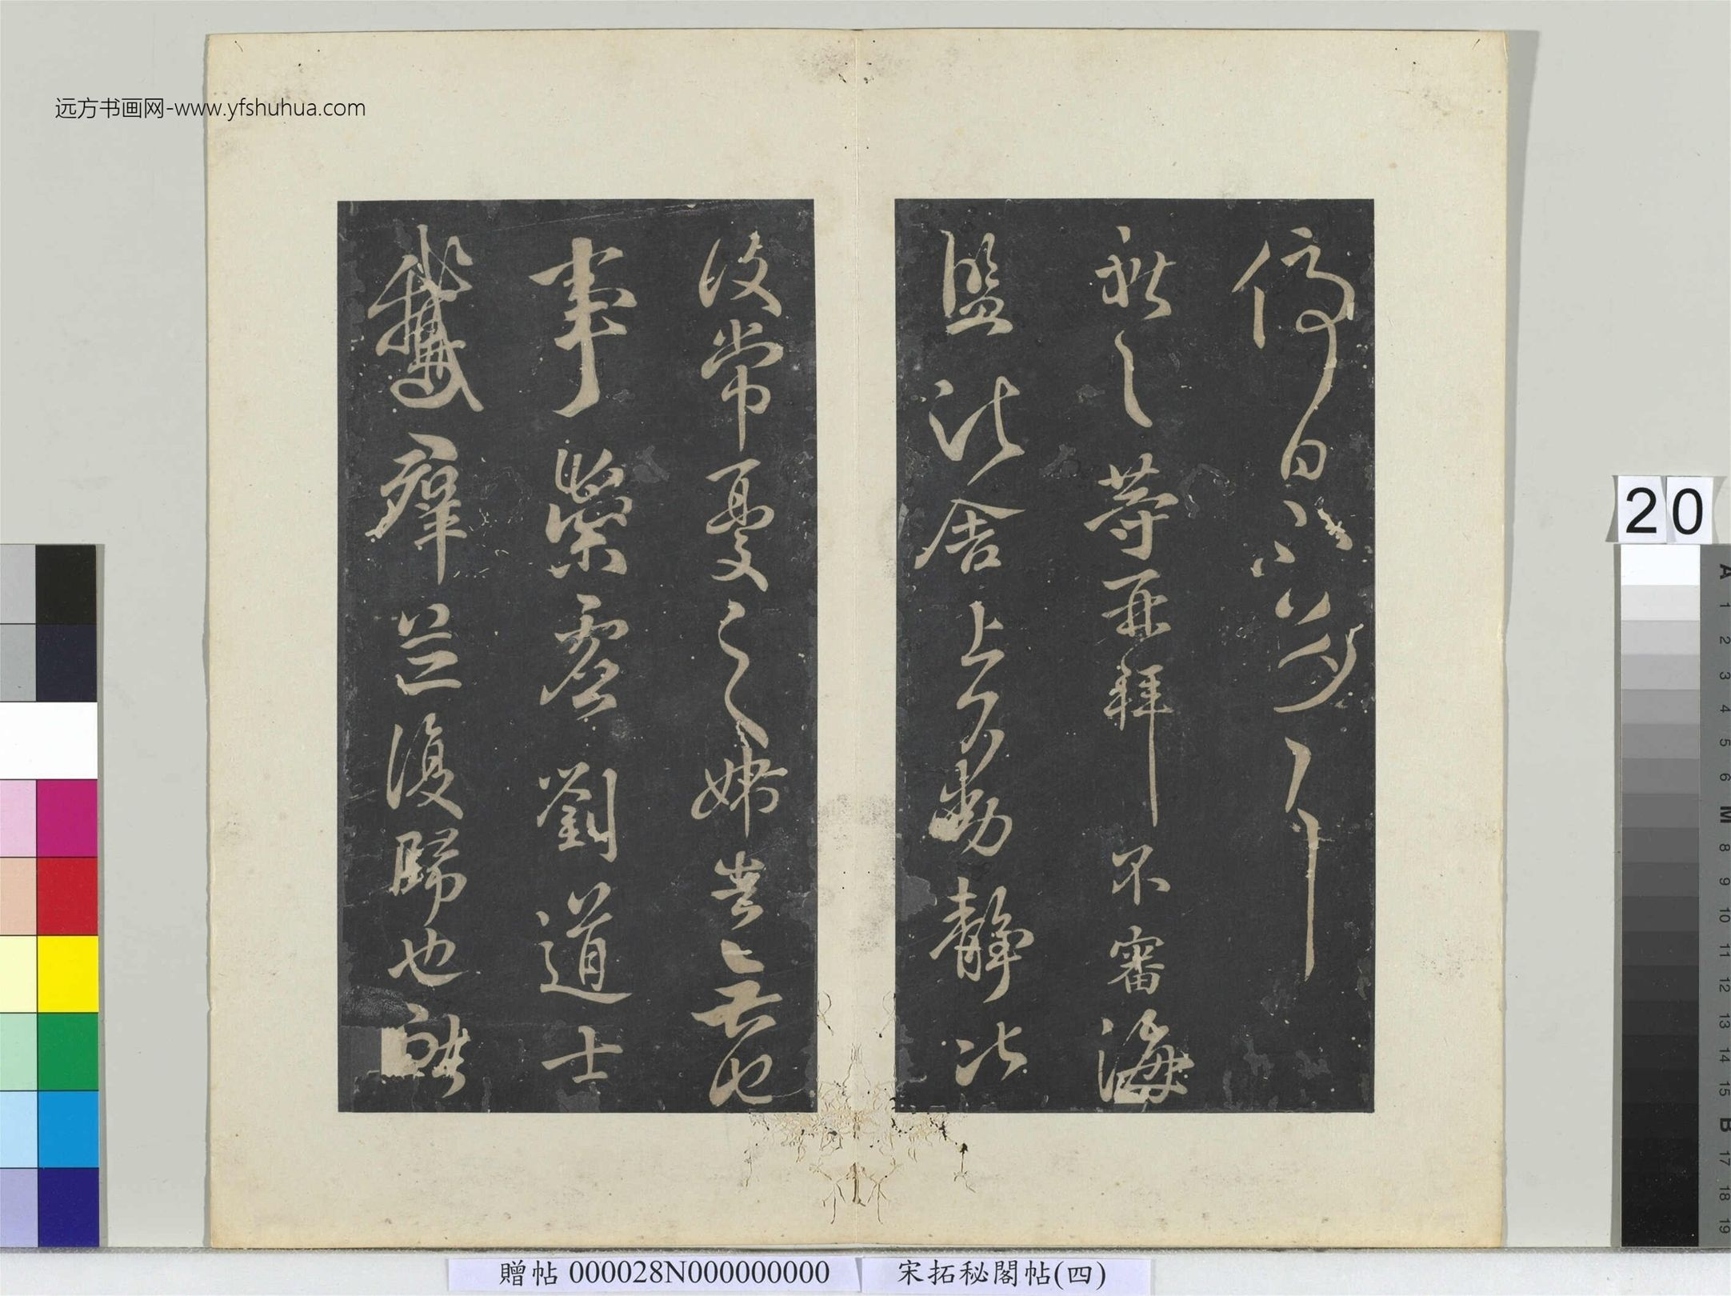 远方书画网-www.yfshuhua.com
停日不
獻之等再拜不審海
鹽諸舍上下動靜比
復常憂之姊告無他
事崇虛劉道士
鵝群並復歸也獻
20
A 1 2 3 4 5 6 M 8 9 10 11 12 13 14 15 B 17 18 19
贈帖 000028N000000000
宋拓秘閣帖(四)